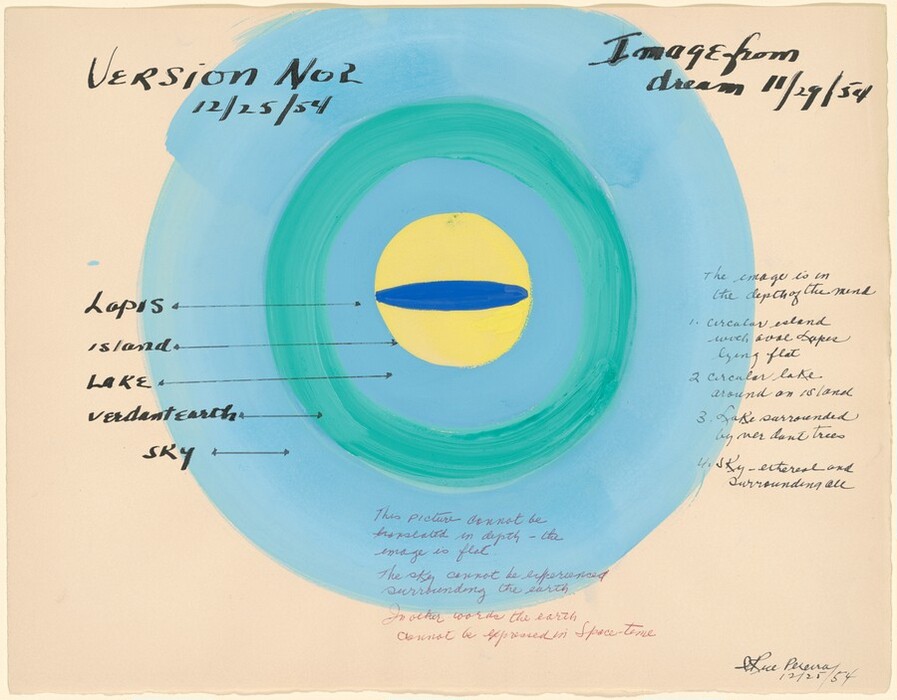 Version No2
12/25/54
Image from
dream 11/29/54
Lapis
island
Lake
verdant earth
Sky
The image is in
the depth of the mind
1. circular island
with oval Lapis
lying flat
2 circular lake
around an island
3. Lake surrounded
by verdant trees
4. Sky - ethereal and
surrounding all
This picture cannot be
translated in depth - the
image is flat
The sky cannot be experienced
surrounding the earth
In other words the earth
cannot be expressed in Space-time
I Rice Pereira
12/25/54